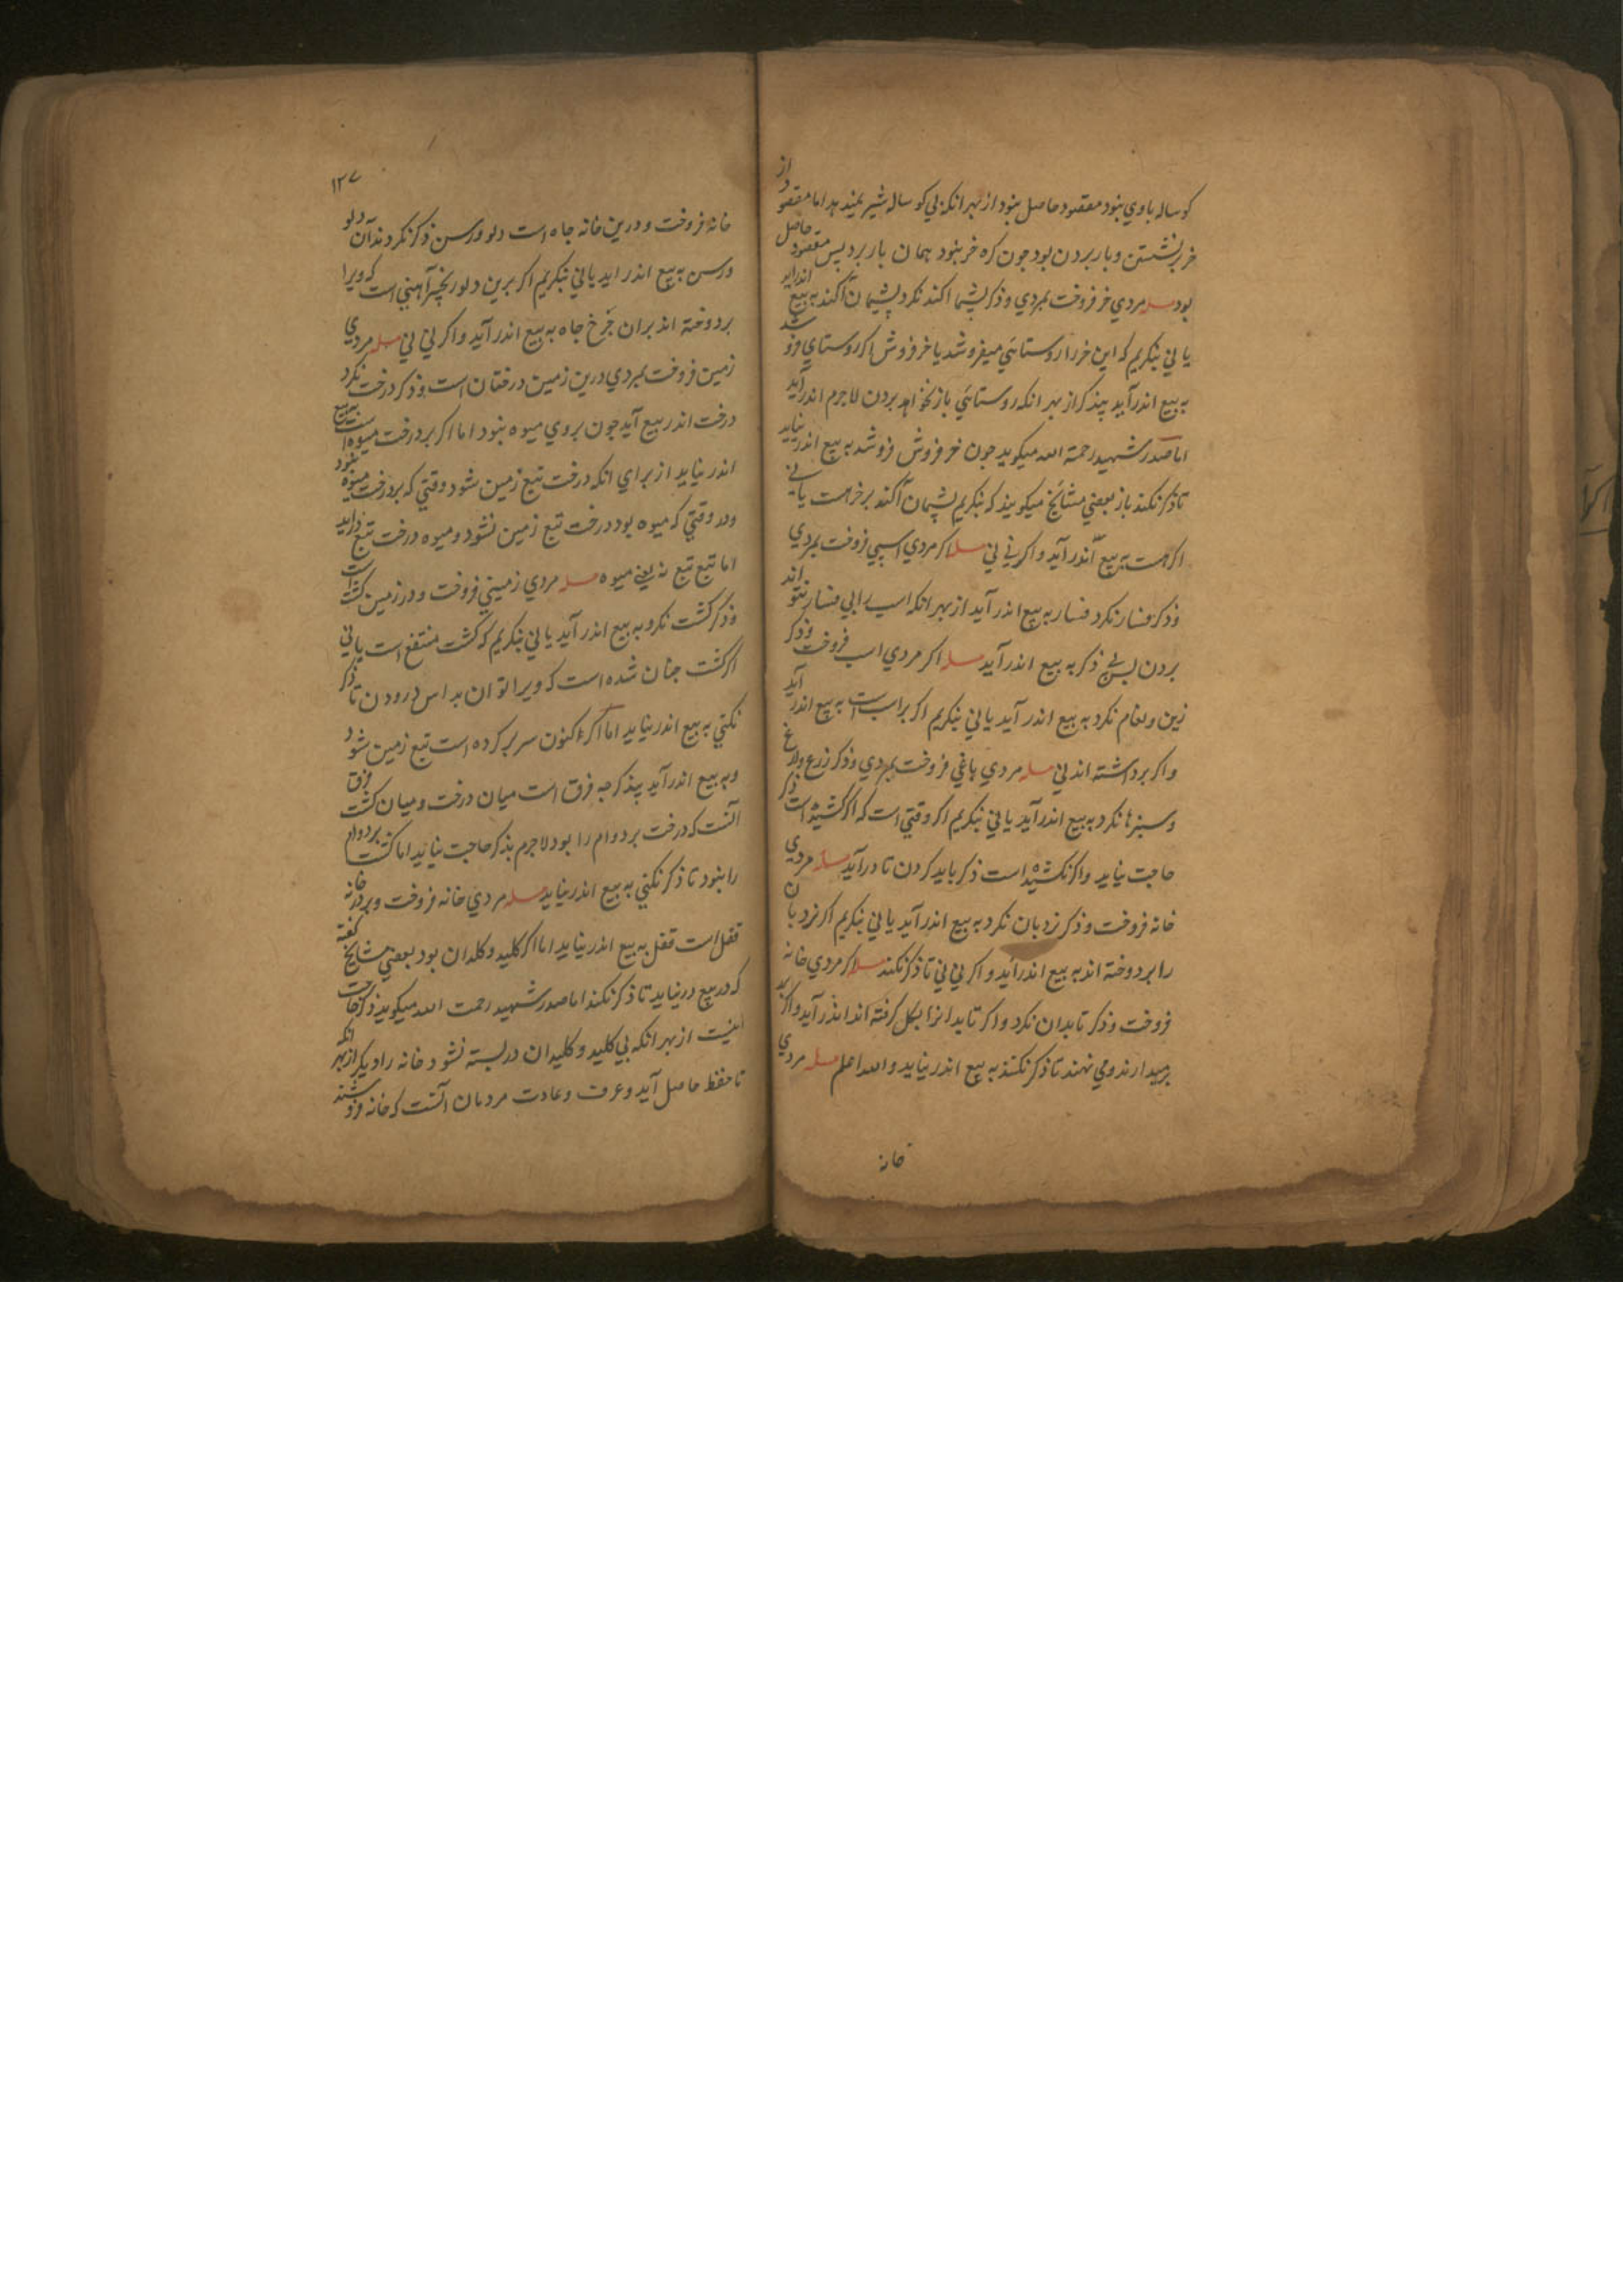 كوساله باوي نبود مقصود حاصل نبود از بهر انكه بي كوساله شير نميدهد اما مقصود از
خر برنشستن وبار بردن بود جون كره خر نبود همان بار برد پس مقصود حاصل
بود مسله مردي خر فروخت بمردي وذكر پشما اكند نكرد پشمان اكند به بيع اندرايد
يا ني بنكريم كه اين خر را روستائي ميفروشد يا خر فروش اكر روستاي فروشد
به بيع اندرآيد بيذكر از بهر انكه روستائي باز نخواهد بردن لاجرم اندرآيد
اما صدر شهيد رحمة الله ميكويد جون خر فروش فروشد به بيع اندر نيايد
تا ذكر نكند باز بعضي مشائخ ميكويند كه بنكريم پشمان آكند بر خر هست يا ني
اكر هست به بيع اندر آيد واكر ني ني مسله اكر مردي اسپي فروخت بمردي
وذكر فسار نكرد فسار به بيع اندر آيد از بهر انكه اسپ را بي فسار نتواند
بردن پس بي ذكر به بيع اندر آيد مسله اكر مردي اسپ فروخت وذكر
زين ولغام نكرد به بيع اندر آيد يا ني بنكريم اكر بر اسپ است به بيع اندر آيد
واكر برداشته اند ني مسله مردي باغي فروخت بمردي وذكر زرع
وسبزها نكرد به بيع اندر آيد يا ني بنكريم اكر وقتي است كه اكر كشيده است ذكر
حاجت نيايد واكر نكشيده است ذكر بايد كردن تا درآيد مسله مردي
خانه فروخت وذكر نردبان نكرد به بيع اندر آيد يا ني بنكريم اكر نردبان
را بر دوخته اند به بيع اندرآيد و اكر ني ني تا ذكر نكند مسله اكر مردي خانه
فروخت وذكر تابدان نكرد واكر تابدانرا بكل كرفته اند اندر آيد واكر
برميدارند ومي نهند تا ذكر نكند به بيع اندر نيايد والله اعلم مسله مردي
خانه
١٢٧
خانه فروخت و درين خانه جاه است دلو ورسن ذكر نكردند آن دلو
ورسن به بيع اندر ايد يا ني بنكريم اكر برين دلو زنجير آهني است كه ويرا
بردوخته اند بران جرخ جاه به بيع اندر آيد واكر ني ني مسله مردي
زمين فروخت بمردي درين زمين درختان است وذكر درخت نكرد
درخت اندر بيع آيد جون بروي ميوه نبود اما اكر بر درخت ميوه است به بيع
اندر نيايد از براي انكه درخت تبع زمين شود وقتي كه بر درخت ميوه نبود
ودر وقتي كه ميوه بود درخت تبع زمين نشود و ميوه درخت تبع درايد
اما تبع تبع نه يعني ميوه مسله مردي زميني فروخت و در زمين كشت است
وذكر كشت نكرد به بيع اندر آيد يا ني بنكريم كه كشت منتفع است يا ني
اكر كشت جنان شده است كه ويرا توان بداس درودن تا ذكر
نكني به بيع اندر نيايد اما اكر اكنون سر بر كرده است تبع زمين شود
وبه بيع اندر آيد بيذكر جه فرق است ميان درخت و ميان كشت فرق
آنست كه درخت بر دوام را بود لاجرم بذكر حاجت نيايد اما كشت بر دوام
را نبود تا ذكر نكني به بيع اندر نيايد مسله مردي خانه فروخت وبر در خانه
قفل است قفل به بيع اندر نيايد اما اكر كليد وكلدان بود بعضي مشايخ كفته
كه در بيع در نيايد تا ذكر نكند اما صدر شهيد رحمت الله ميكويد ذكر حاجت
نيست از بهر انكه بي كليد و كليدان در بسته نشود خانه را ديكر از بهر انكه
تا حفظ حاصل آيد و عرف وعادت مردمان آنست كه خانه فروشند